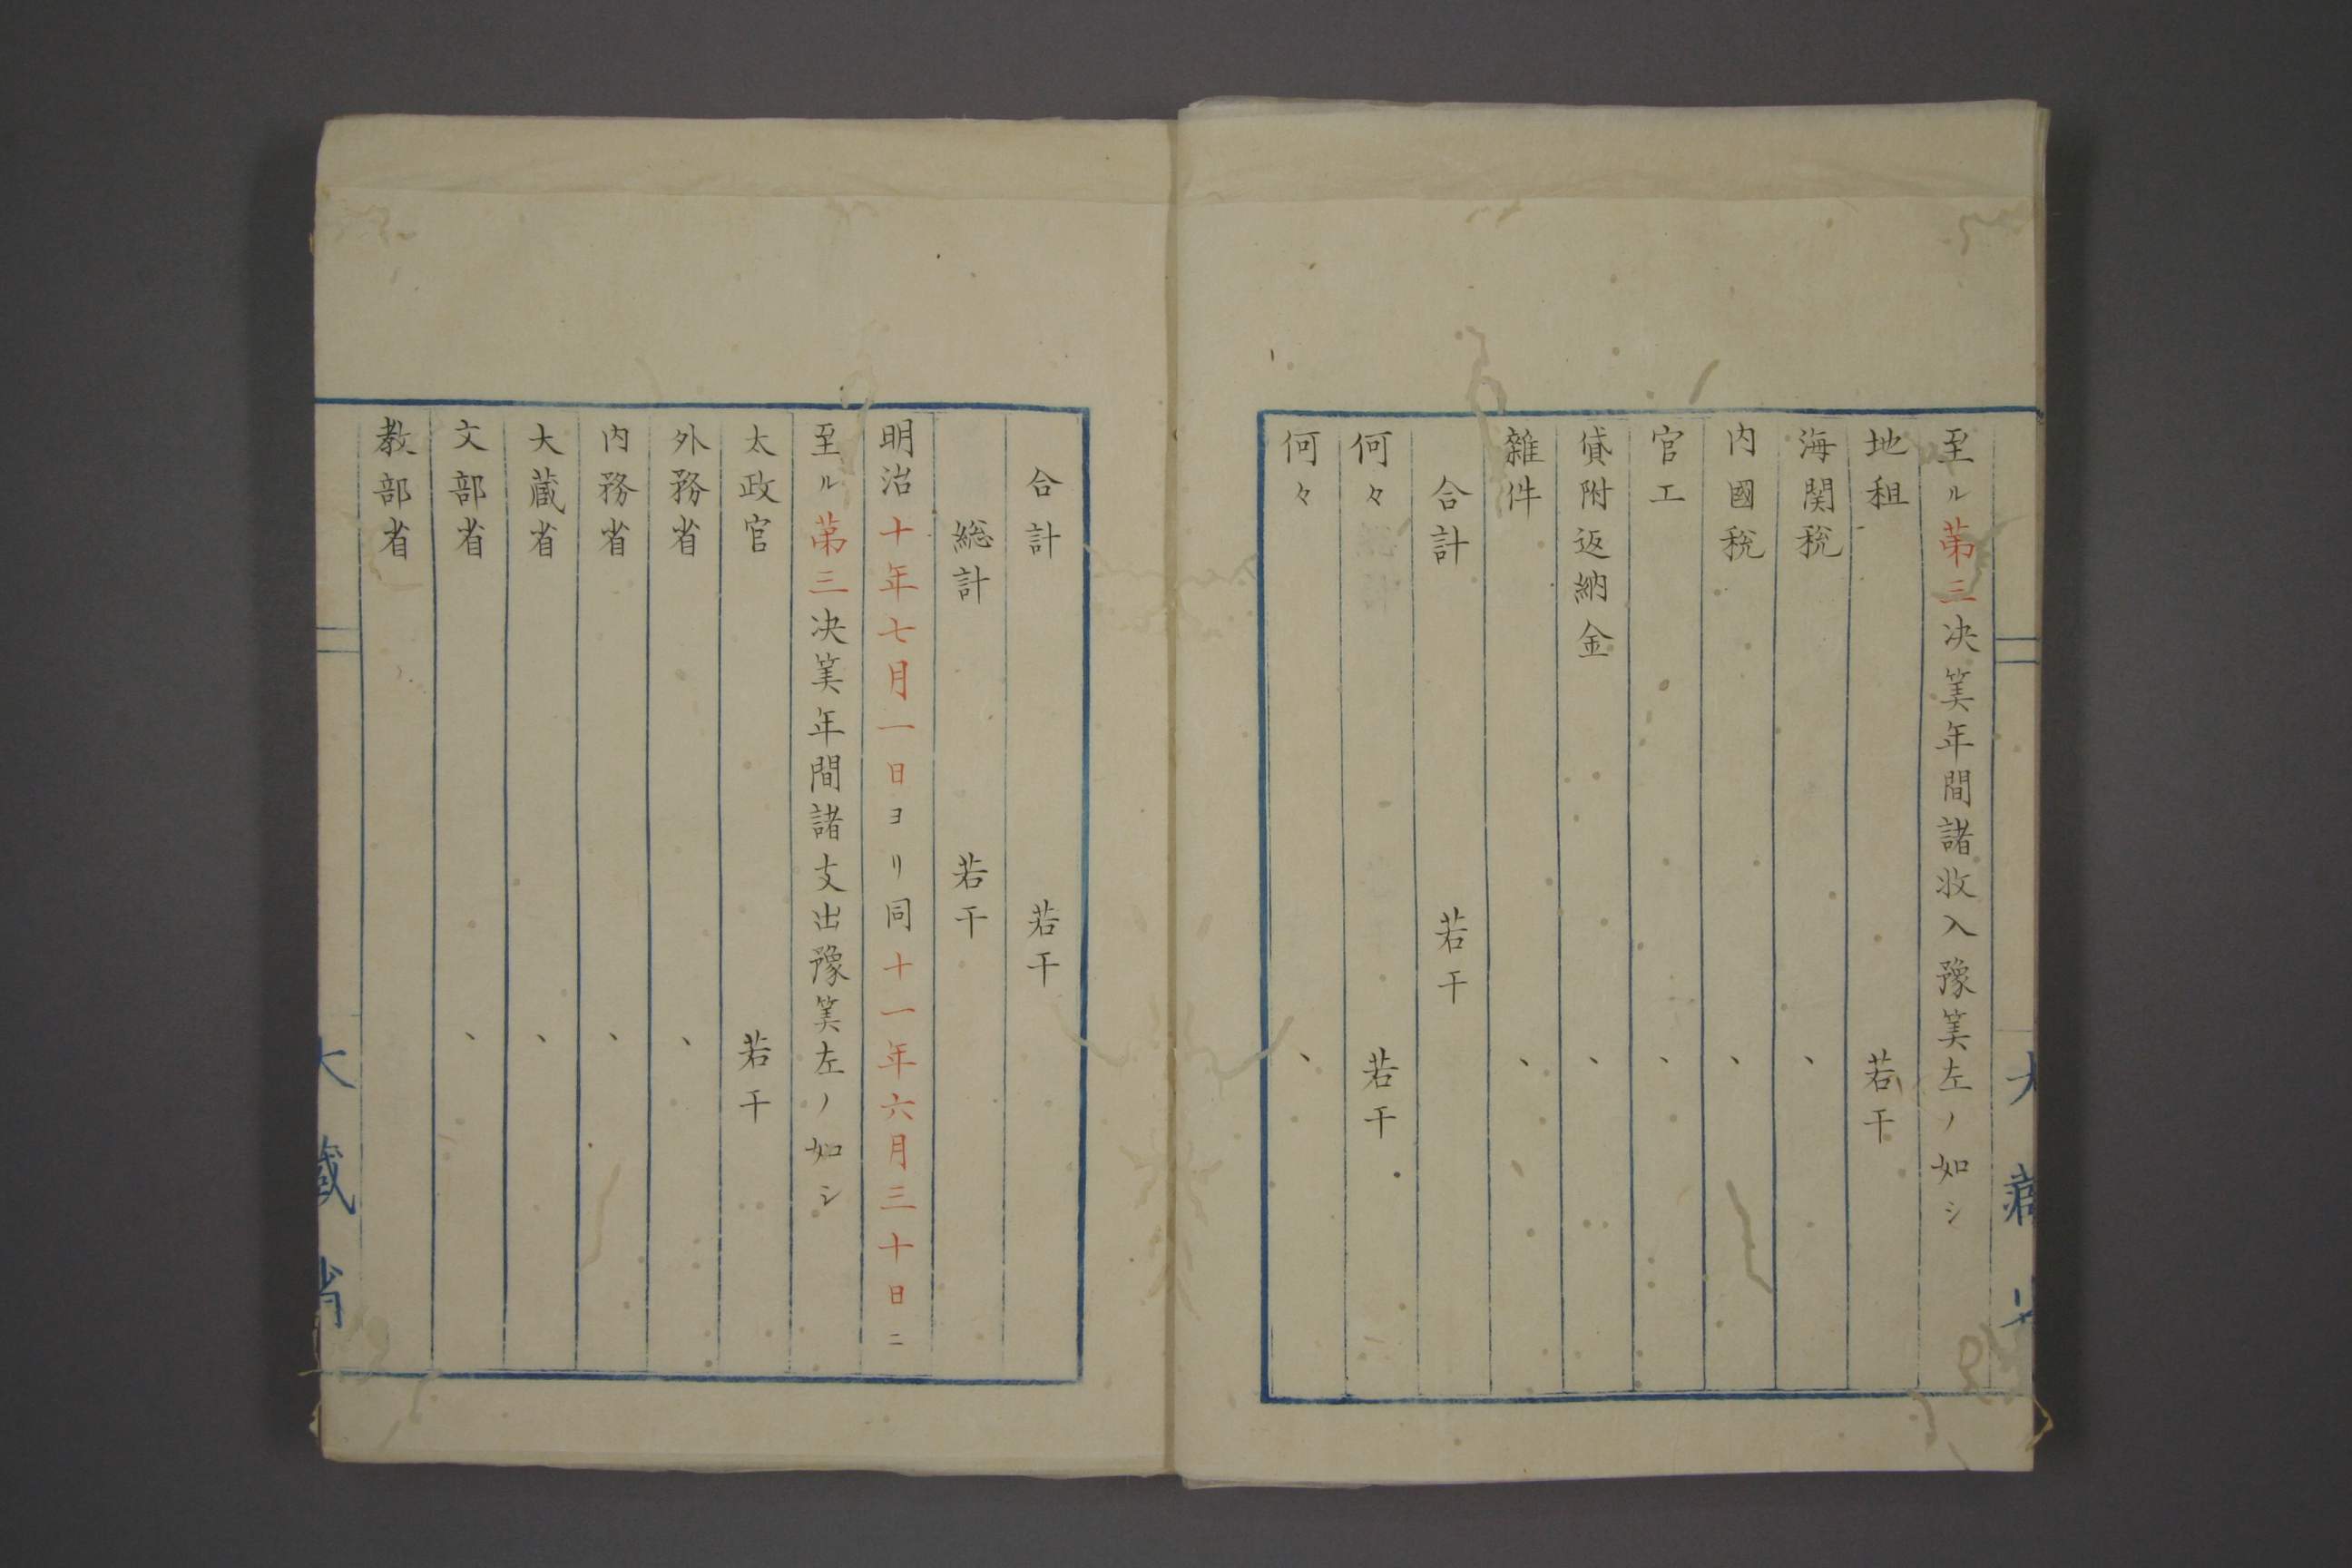 至ル第三决筭年間諸收入豫筭左ノ如シ
地租 若干
海関税 、
内國税 、
官工 、
貸附返納金 、
雜件 、
合計 若干
何々 若干
何々 、
合計 若干
総計 若干
明治十年七月一日ヨリ同十一年六月三十日ニ
至ル第三决筭年間諸支出豫筭左ノ如シ
太政官 若干
外務省 、
内務省 、
大蔵省 、
文部省 、
教部省
大藏省